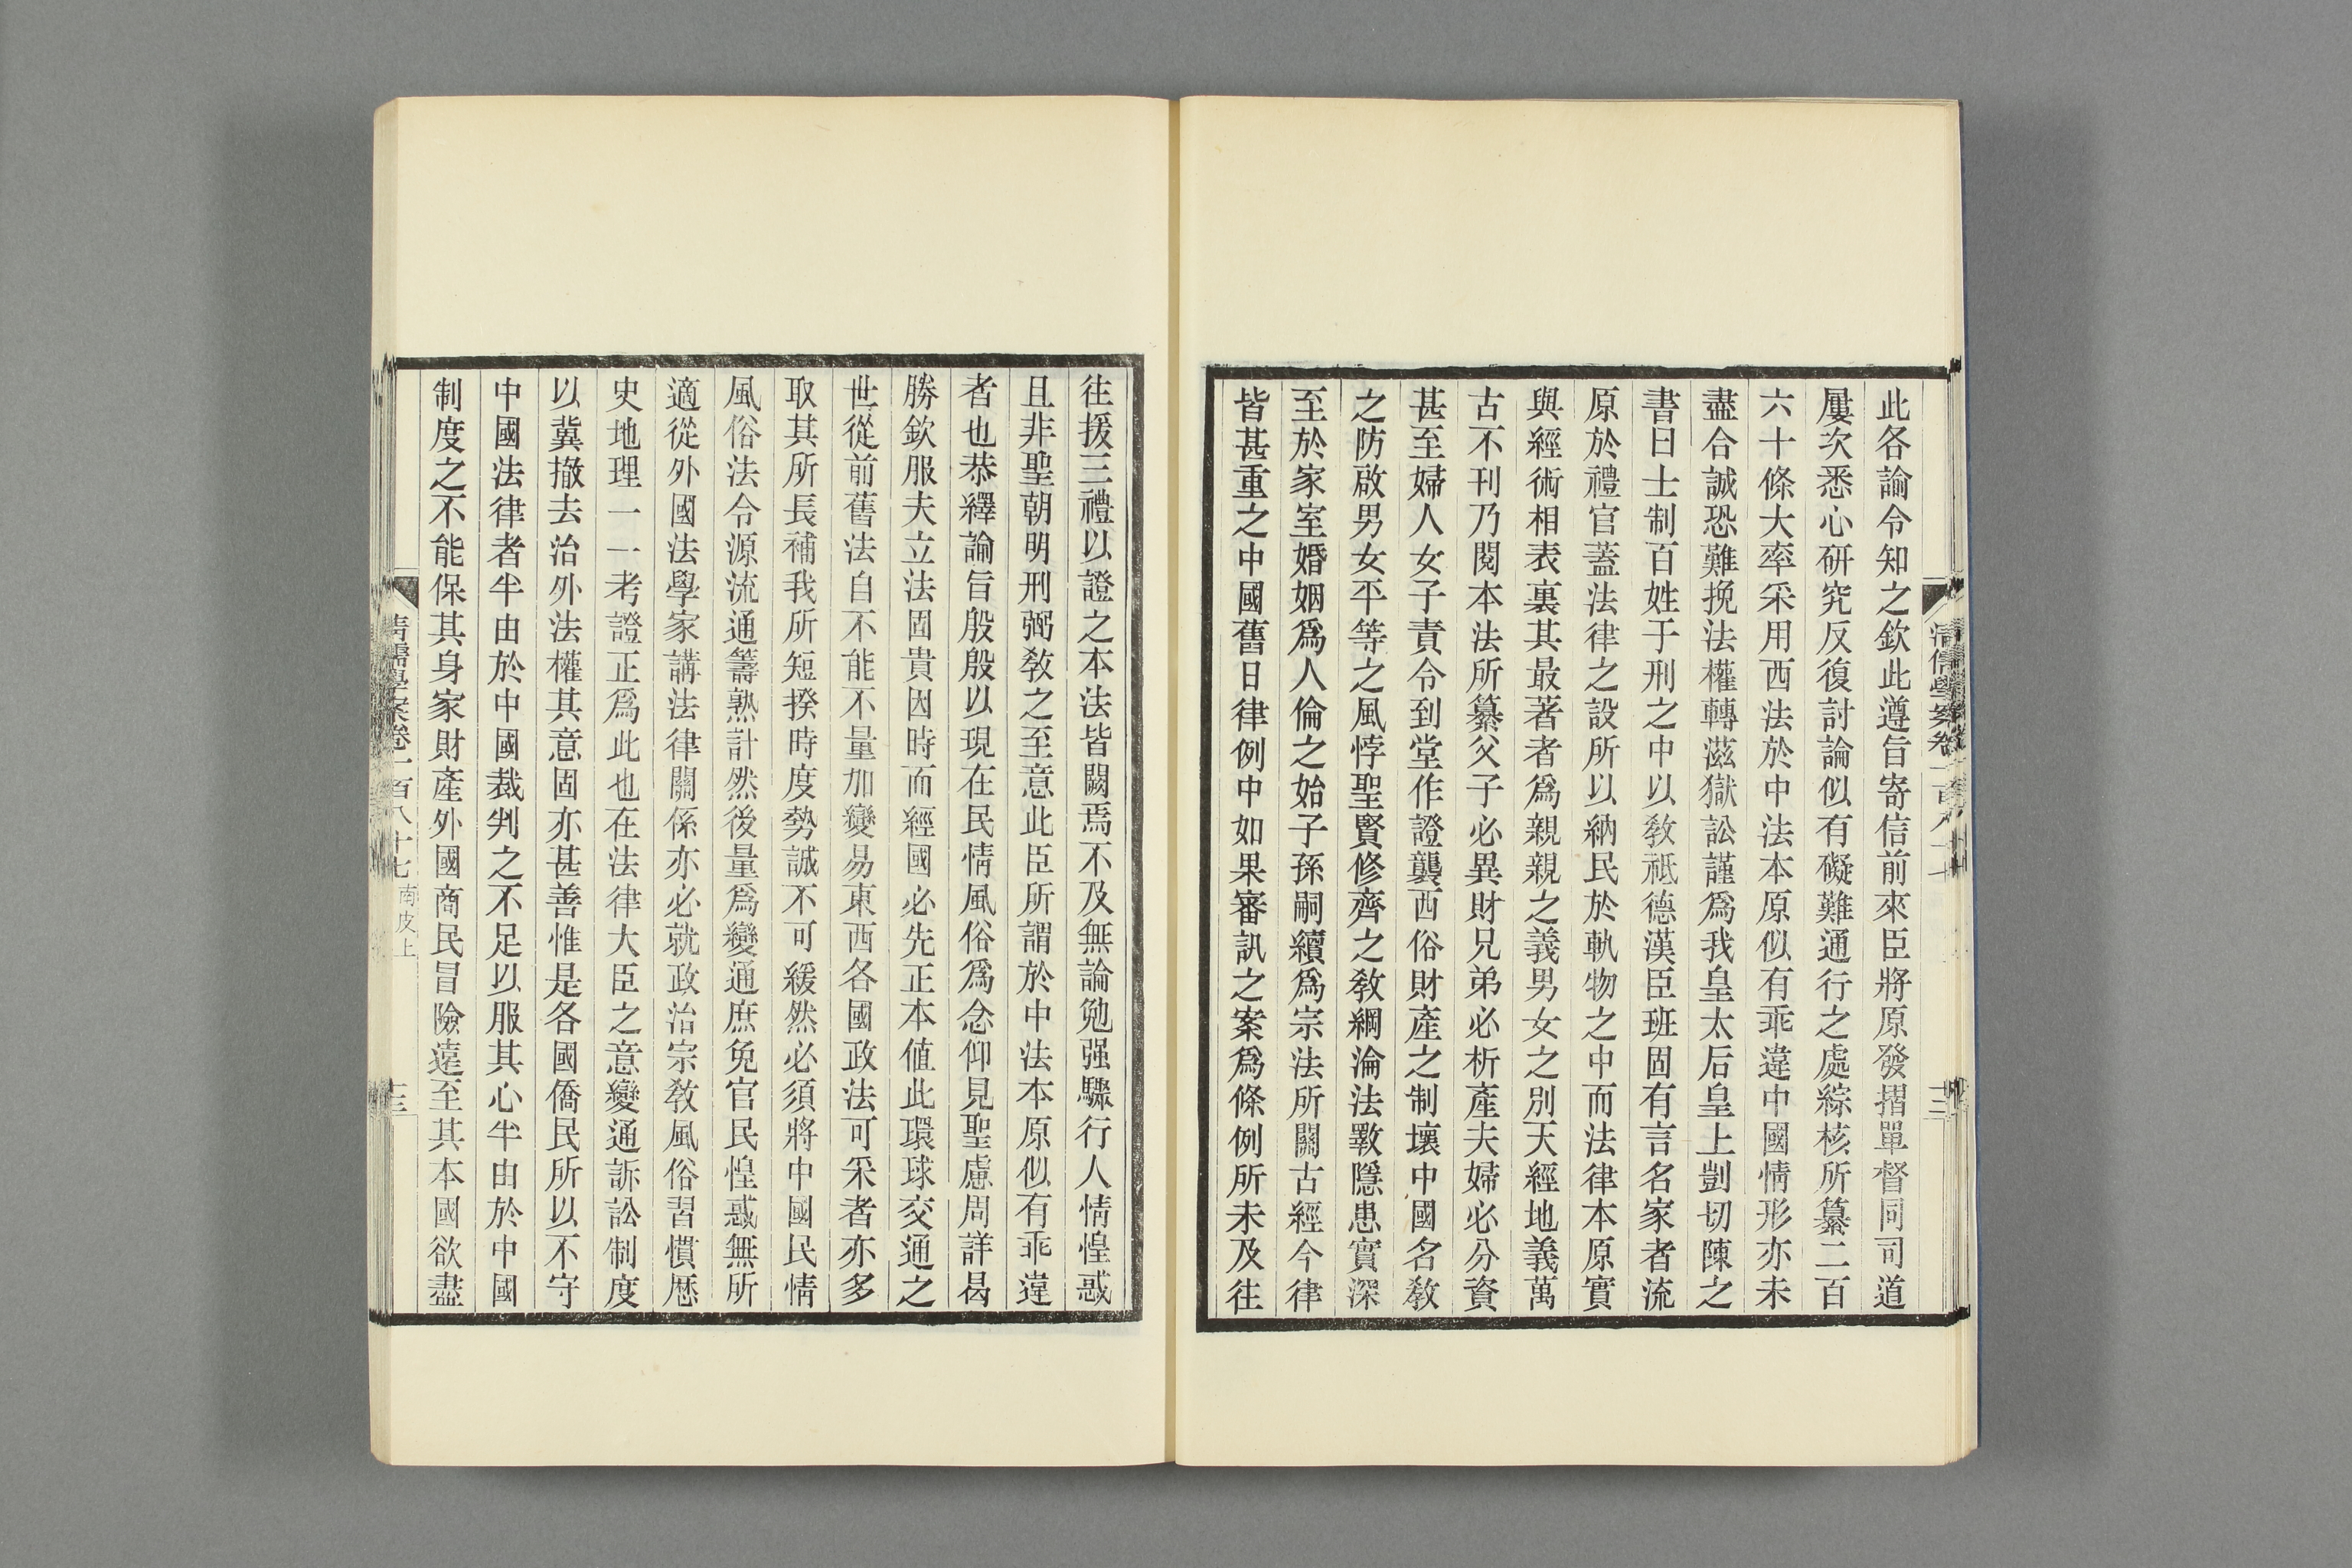 此各諭令知之欽此遵旨寄信前來臣將原發摺單督同司道
屢次悉心研究反復討論似有礙難通行之處綜核所纂二百
六十條大率采用西法於中法本原似有乖違中國情形亦未
盡合誠恐難挽法權轉滋獄訟謹爲我皇太后皇上剴切陳之
書曰士制百姓于刑之中以敎祗德漢臣班固有言名家者流
原於禮官蓋法律之設所以納民於軌物之中而法律本原實
與經術相表裏其最著者爲親親之義男女之別天經地義萬
古不刊乃閱本法所纂父子必異財兄弟必析產夫婦必分資
甚至婦人女子責令到堂作證襲西俗財產之制壞中國名敎
之防啟男女平等之風悖聖賢修齊之敎綱淪法斁隱患實深
至於家室婚姻爲人倫之始子孫嗣續爲宗法所關古經今律
皆甚重之中國舊日律例中如果審訊之案爲條例所未及往
往援三禮以證之本法皆闕焉不及無論勉强驟行人情惶惑
且非聖朝明刑弼敎之至意此臣所謂於中法本原似有乖違
者也恭繹諭旨殷殷以現在民情風俗爲念仰見聖慮周詳曷
勝欽服夫立法固貴因時而經國必先正本値此環球交通之
世從前舊法自不能不量加變易東西各國政法可采者亦多
取其所長補我所短揆時度勢誠不可緩然必須將中國民情
風俗法令源流通籌熟計然後量爲變通庶免官民惶惑無所
適從外國法學家講法律關係亦必就政治宗敎風俗習慣歷
史地理一一考證正爲此也在法律大臣之意變通訴訟制度
以冀撤去治外法權其意固亦甚善惟是各國僑民所以不守
中國法律者半由於中國裁判之不足以服其心半由於中國
制度之不能保其身家財產外國商民冒險遠至其本國欲盡
清儒學案卷一百八十七 南皮上
十三